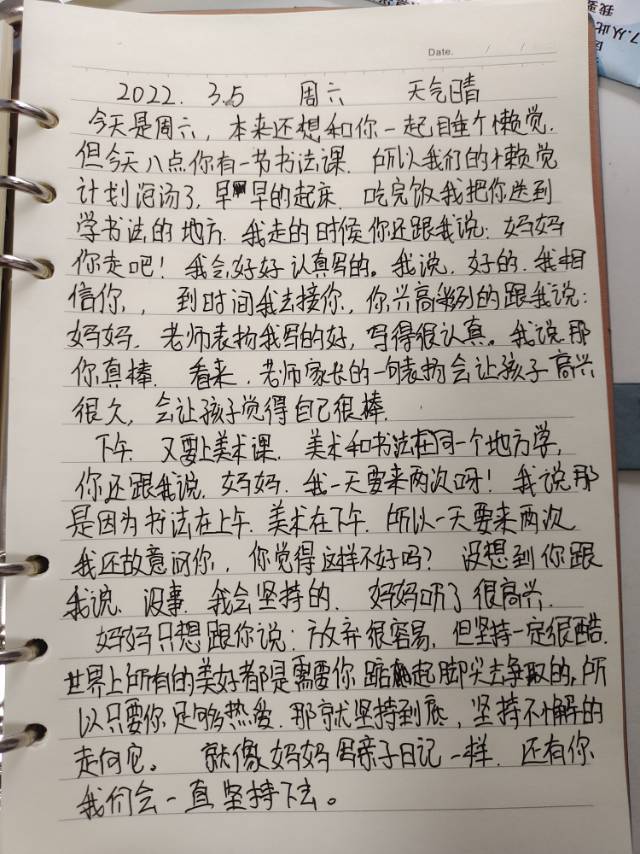 7.从此
我要
Date.    /    /
2022. 3.5 周六 天气晴
今天是周六，本来还想和你一起睡个懒觉.
但今天八点你有一节书法课. 所以我们的懒觉
计划泡汤了，早早的起床. 吃完饭我把你送到
学书法的地方. 我走的时候你还跟我说：妈妈
你走吧！我会好好认真写的。我说. 好的. 我相
信你,，到时间我去接你，你兴高彩列的跟我说：
妈妈. 老师表扬我写的好，写得很认真。我说那
你真棒. 看来. 老师家长的一句表扬会让孩子高兴
很久，会让孩子觉得自己很棒.
下午. 又要上美术课. 美术和书法在同一个地方学，
你还跟我说. 妈妈. 我一天要来两次呀！我说那
是因为书法在上午. 美术在下午. 所以一天要来两次
我还故意问你，你觉得这样不好吗？没想到你跟
我说. 没事. 我会坚持的. 妈妈听了很高兴.
妈妈只想跟你说：放弃很容易，但坚持一定很酷.
世界上所有的美好都是需要你踮起脚尖去争取的，所
以只要你足够热爱. 那就坚持到底，坚持不懈的
走向它。 就像妈妈写亲子日记一样. 还有你
我们会一直坚持下去。